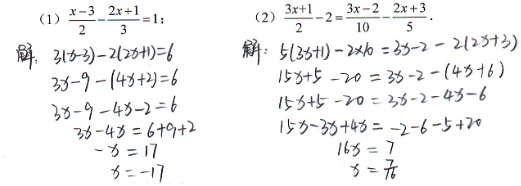 (1) \frac{x-3}{2} - \frac{2x+1}{3} = 1;
解: 3(x-3)-2(2x+1)=6
3x-9-(4x+2)=6
3x-9-4x-2=6
3x-4x=6+9+2
-x=17
x=-17
(2) \frac{3x+1}{2} - 2 = \frac{3x-2}{10} - \frac{2x+3}{5}.
解: 5(3x+1)-2×10=3x-2-2(2x+3)
15x+5-20=3x-2-(4x+6)
15x+5-20=3x-2-4x-6
15x-3x+4x=-2-6-5+20
16x=7
x=\frac{7}{16}